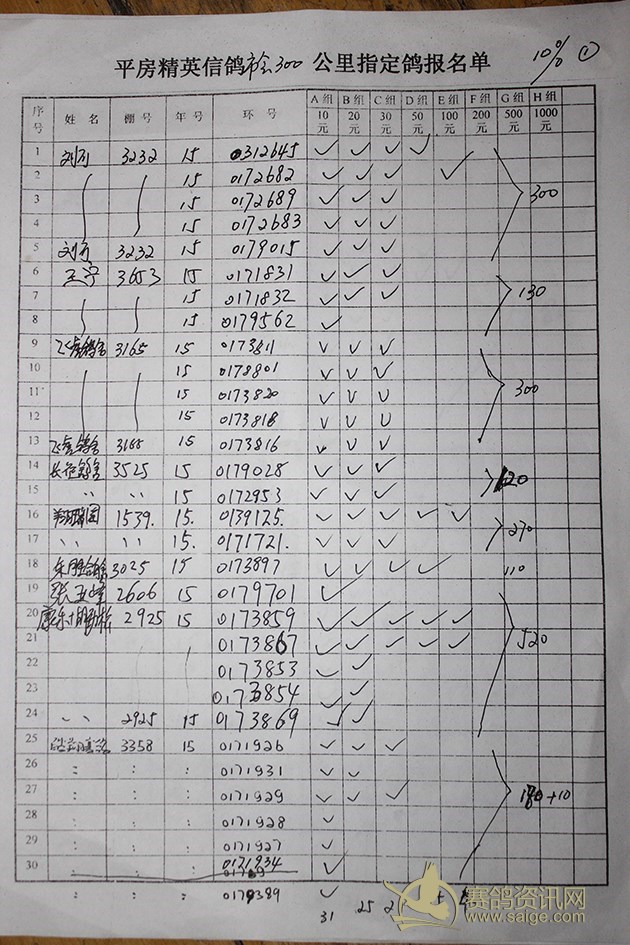 平房精英信鸽 300 公里指定鸽报名单 10% ①
序号 姓名 棚号 年号 环号 A组10元 B组20元 C组30元 D组50元 E组100元 F组200元 G组500元 H组1000元
1 3232 15 0312645 ✓ ✓ ✓ ✓
2 15 0172682 ✓ ✓ ✓ ✓
3 15 0172689 ✓ ✓ ✓ 300
4 15 0172683 ✓ ✓ ✓
5 3232 15 0179015 ✓ ✓ ✓
6 王宁 3653 15 0171831 ✓ ✓ ✓
7 15 0171832 ✓ ✓ ✓ 130
8 15 0179562 ✓
9 3165 15 0173811 ✓ ✓ ✓
10 15 0178801 ✓ ✓ ✓
11 15 0173820 ✓ ✓ ✓ 300
12 15 0173818 ✓ ✓ ✓
13 15 0173816 ✓ ✓ ✓
14 3525 15 0179028 ✓ ✓ ✓
15 〃 〃 15 0172953 ✓ ✓ ✓ 120
16 1539. 15. 0139125. ✓ ✓ ✓ ✓ ✓
17 〃 〃 15. 0171721. ✓ ✓ ✓ 270
18 3025 15 0173897 ✓ ✓ ✓ ✓ 110
19 2606 15 0179701 ✓
20 2925 15 0173859 ✓ ✓ ✓ ✓ ✓
21 0173867 ✓ ✓ ✓ ✓ ✓ 520
22 0173853 ✓ ✓
23 0173854 ✓ ✓
24 〃 2925 15 0173869 ✓ ✓
25 3358 15 0171926 ✓ ✓ ✓
26 : : : 0171931 ✓ ✓
27 : : : 0171929 ✓ ✓ ✓ +10
28 : : : 0171928 ✓
29 : : : 0171927 ✓
30 0171934 ✓
: : : ✓
31 25
赛鸽资讯网
www.saige.com